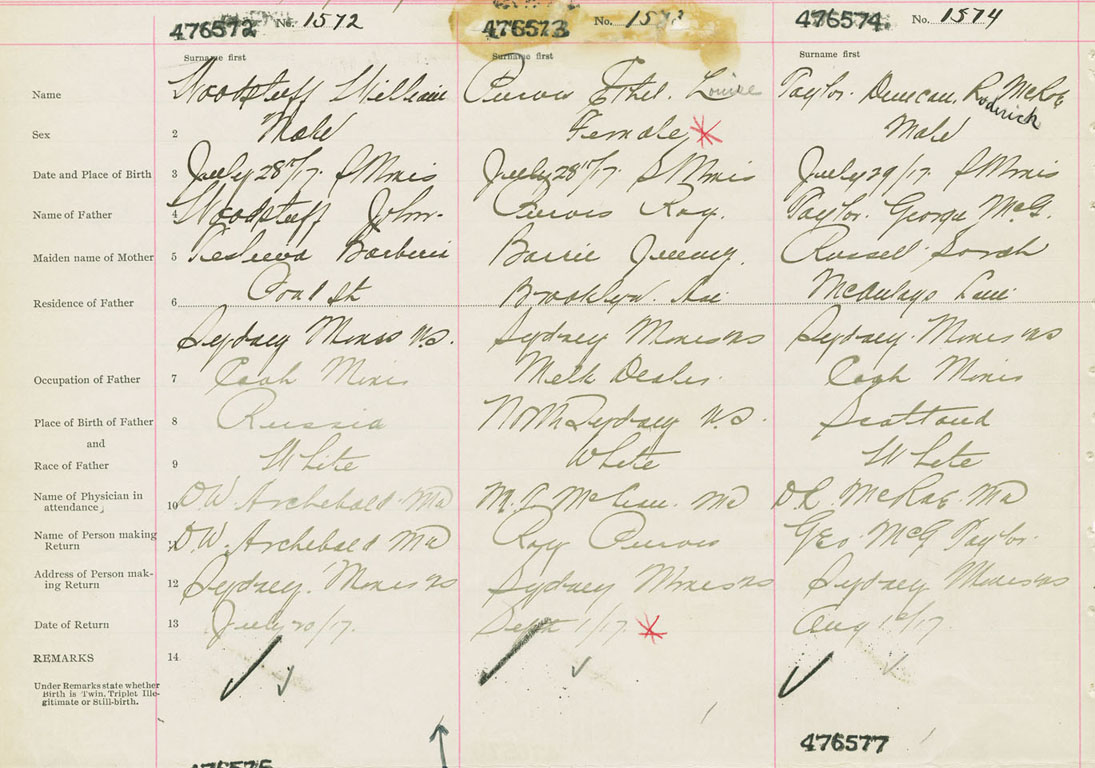 476572 No. 1572 476573 No. 15 476574 No. 1574
Surname first Surname first Surname first
Name William Purvis Ethel. Louise Taylor. Duncan, Roderick McRae
Sex 2 Male Female Male
Date and Place of Birth 3 July 28th/17. S Mines July 28th/17. S Mines July 29/17. S Mines
Name of Father 4 John. Purvis Roy. Taylor. George McG.
Maiden name of Mother 5 Barrie Russel Sarah
Residence of Father 6 St Brooklyn. Lane
Sydney Mines N.S. Sydney Mines NS Sydney. Mines NS
Occupation of Father 7 Milk Dealer.
Place of Birth of Father 8 Russia North Sydney N.S. Scotland
and
Race of Father 9 White White White
Name of Physician in 10 D.W. Archebald. MD MD D.R. McRae. MD
attendance
Name of Person making 11 D.W. Archebald MD Roy Purvis Geo. McG Taylor.
Return
Address of Person mak- 12 Sydney. Mines NS Sydney Mines NS Sydney Mines NS
ing Return
Date of Return 13 July 30/17. Sept 1/17. Aug 17
REMARKS 14
Under Remarks state whether
Birth is Twin, Triplet Ille-
gitimate or Still-birth.
476577